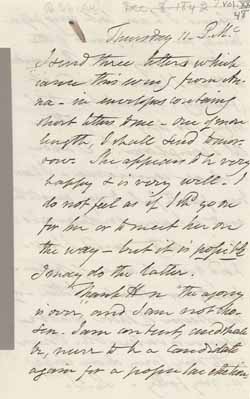 Dec. 8 1842
Vol. XX
48
Thursday 11 P.M.
I send three letters which
came this evng from An-
na - in envelopes containing
short letters to me - one of more
length, I shall send tomor-
row. She appears to be very
happy & is very well. I
do not feel as if I shd go on
for her or to meet her on
the way - but it is possible
I may do the latter.
Thank H n the agony
is over, and I am not cho-
sen. I am content, and shall
be, never to be a candidate
again for a popular election